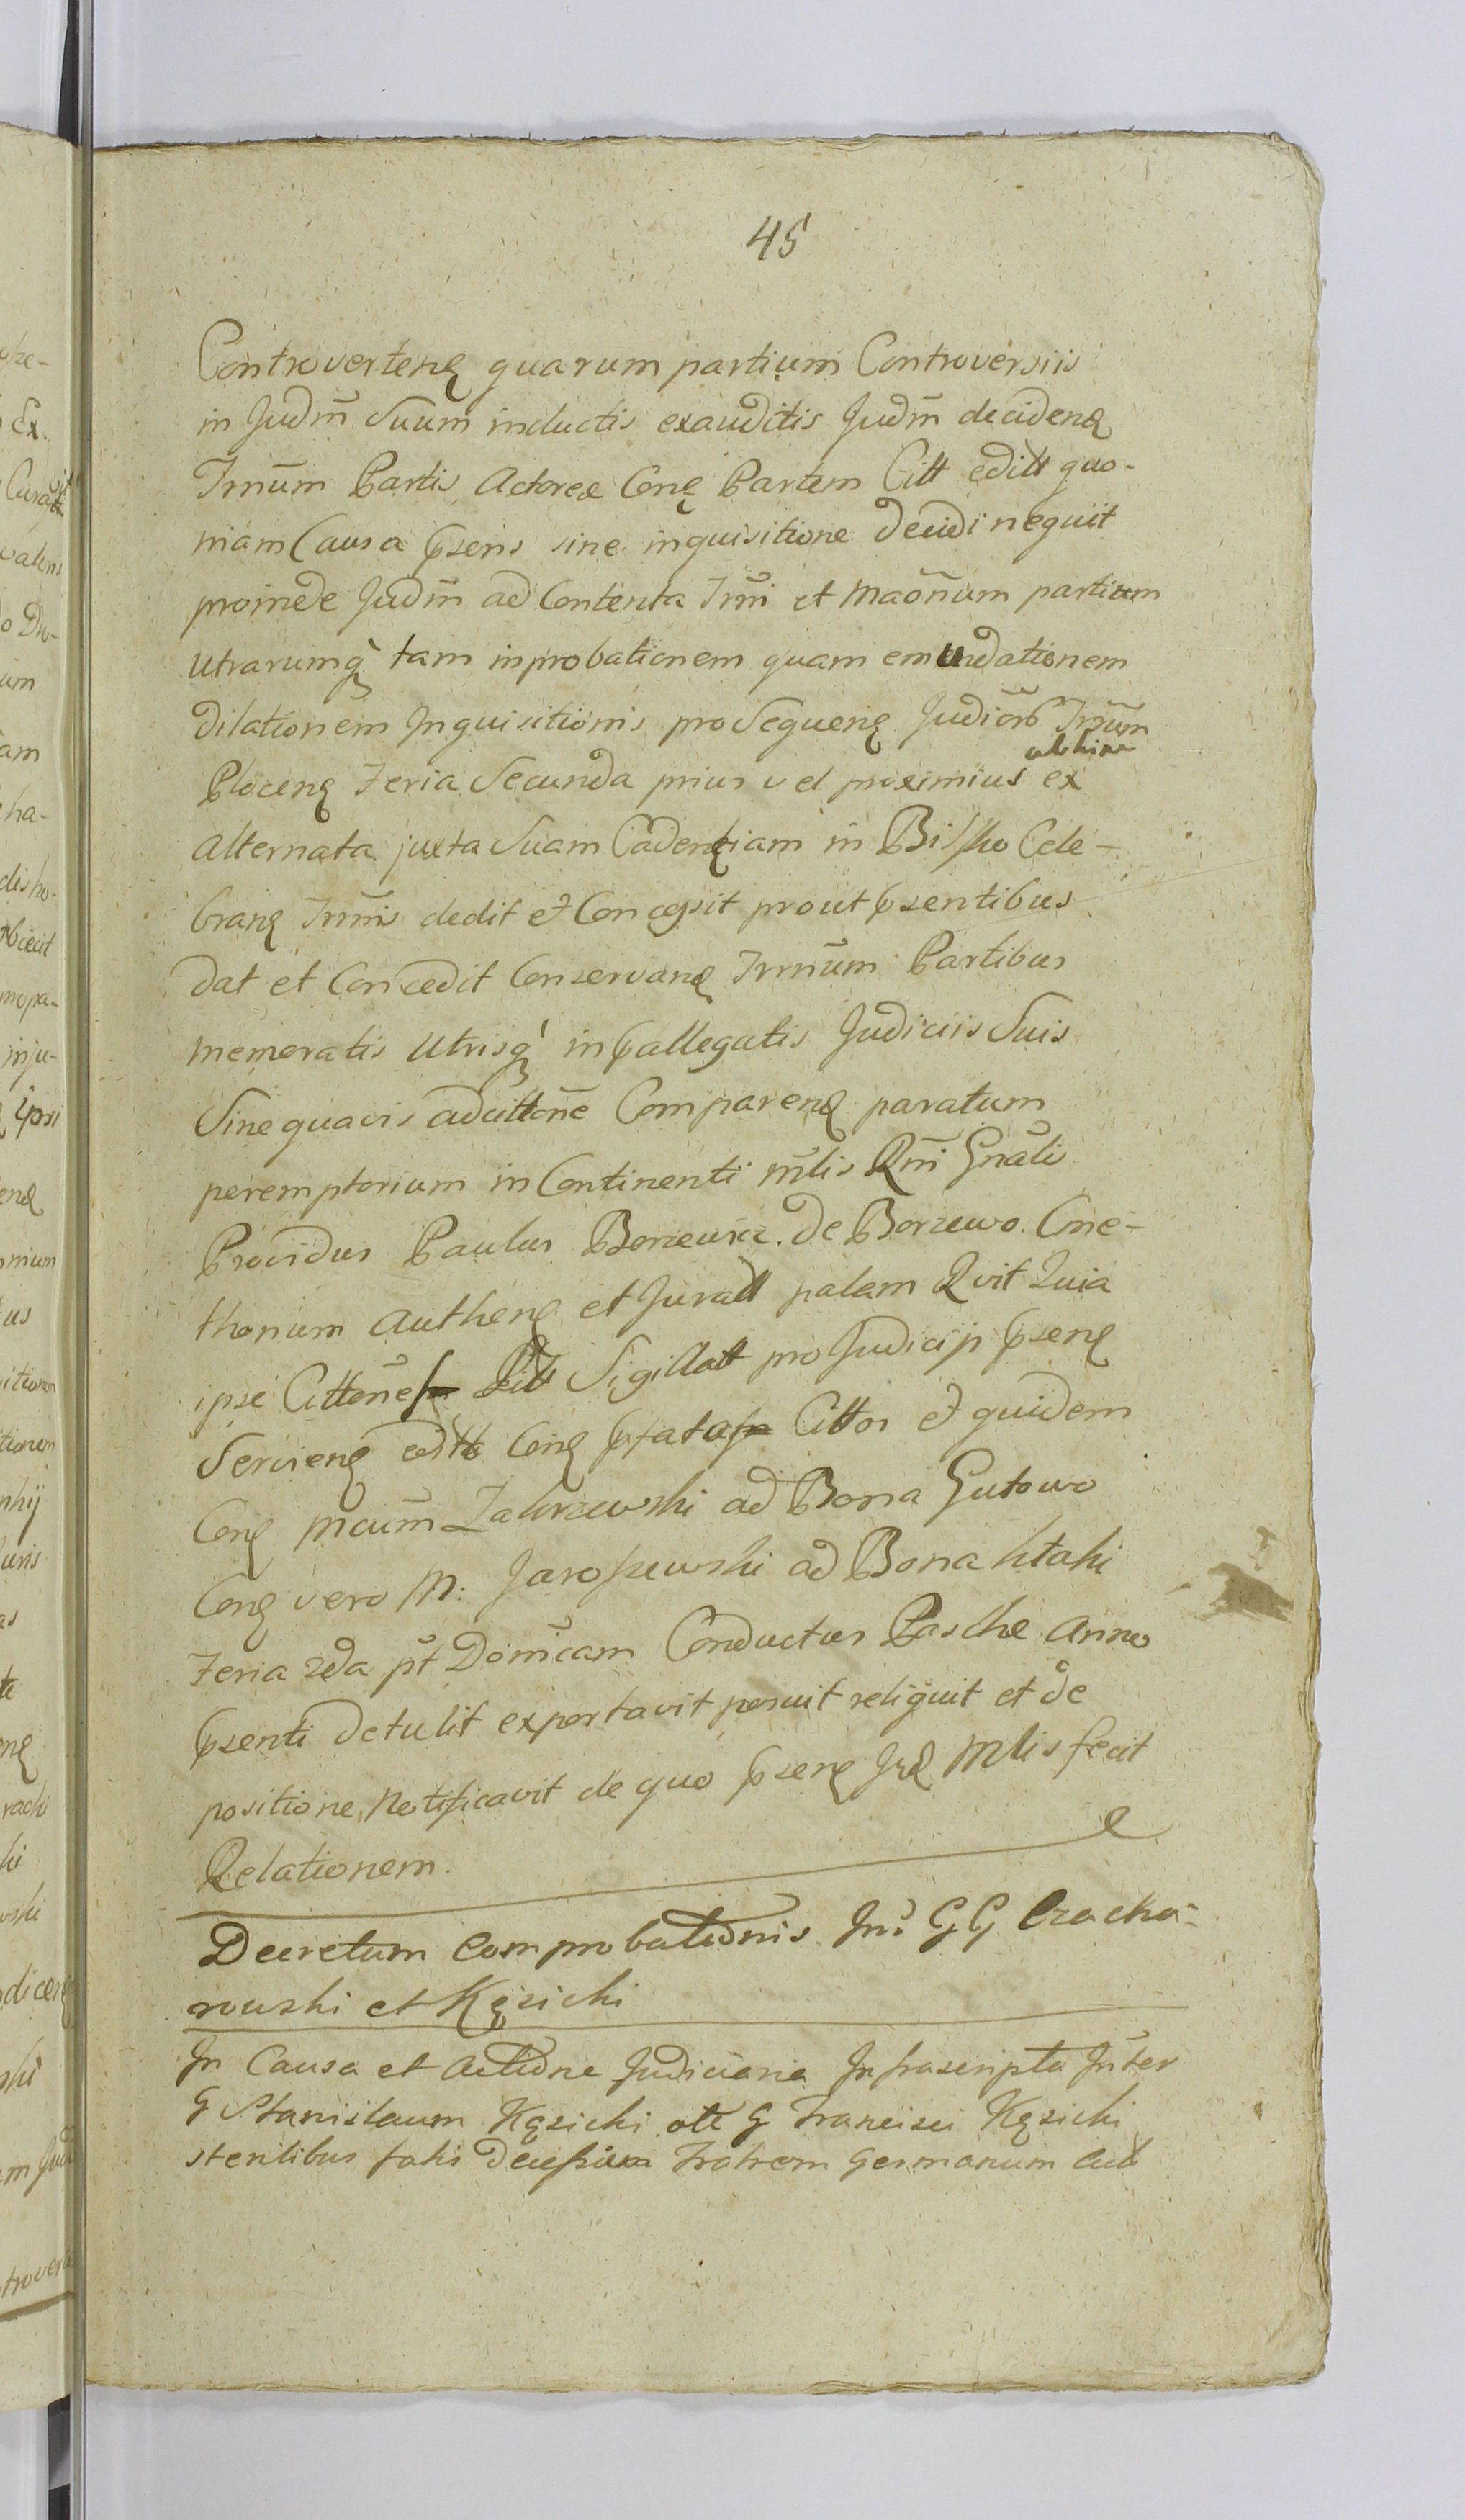 45
Controverteñ quarum partium Controversiis
in Judm̃ Suum inductis exauditis Judm̃ decideñ
Trnũm Partis Actoreæ Coñ Partem Citt editt quo-
niam Causa pseñs sine inquisitione decidi nequit
proinde Judm̃ ad Contenta Trm̃i et Maõnum partium
utrarumq̃ tam in probationem quam emundationem
dilationem Inquisitionis pro Sequeñ Judiciõr Trnũm
Ploceñ Feria Secunda prius vel proximius abhinc ex
alternata juxta Suam Cadentiam in Bilsko Cele-
brañ Trm̃is dedit et Concessit prout psentibus
dat et Concedit Conservañ Trmñum Partibus
memoratis Utrisq̃ in pallegatis Judiciis Suis
Sine quavis adcittõne Compareñ paratum
peremptorium in Continenti m̃lis Rñi Gnãli
Providus Paulus Borzewicz de Borzewo Cme-
thonum Autheñ et Juratt palam Rvit Quia
ipse Cittõnes Litt Sigillatt pro Judicijs pseñ
Servieñ editt Coñ pfatas Cittos et quidem
Coñ Mcũm Zakrzewski ad Bona Gutowo
Coñ vero M: Jaroszewski ad Bona Ktaki
Feria 2da pt̃ Domĩcam Conductus Paschæ Anno
psenti detulit exportavit posuit reliquit et de
positione Notificavit de quo pseñ Jud Mlis fecit
Relationem.
Decretum Comprobationis Int̃ GG Cracho-
nowski et Kęsicki
In Causa et Actione Judiciaria Infrascripta Inter
G Stanislaum Kęsicki olt G Francisci Kęsicki
sterilibus fatis Fratrem Germanum